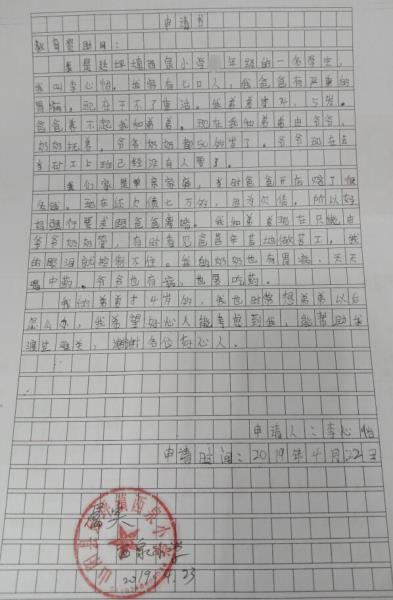 申请书
教育资助局：
我是赵坪镇西泉小学 年级的一名学生，
我叫李心怡。我家有七口人，我爸爸有严重的
胃病。现在干不了重活。我弟弟才4、5岁。
爸爸养不起我和弟弟。现在我和弟弟由爷爷、
奶奶抚养。爷爷奶奶都50的岁了。爷爷现在去
矿工上班已经没有人要了。
我们家是单亲家庭，当时爸爸开店赔了很
多钱。现在还欠债七万的，因为欠债。所以妈
妈强行要求跟爸爸离婚。我和弟弟现在只能由
爷爷奶奶管，有时看见爸爸辛苦地做苦工，我
的眼泪就控制不住。我的奶奶也有胃病，天天
喝中药。爷爷也有病，也要吃药。
我的弟弟才4岁的，我也时常想弟弟以后
怎么办，我希望好心人能考虑到我，能帮助我
渡过难关，谢谢各位好心人。
申请人：李心怡
申请时间：2019年4月22日
属实
西泉小学
2019.4.23